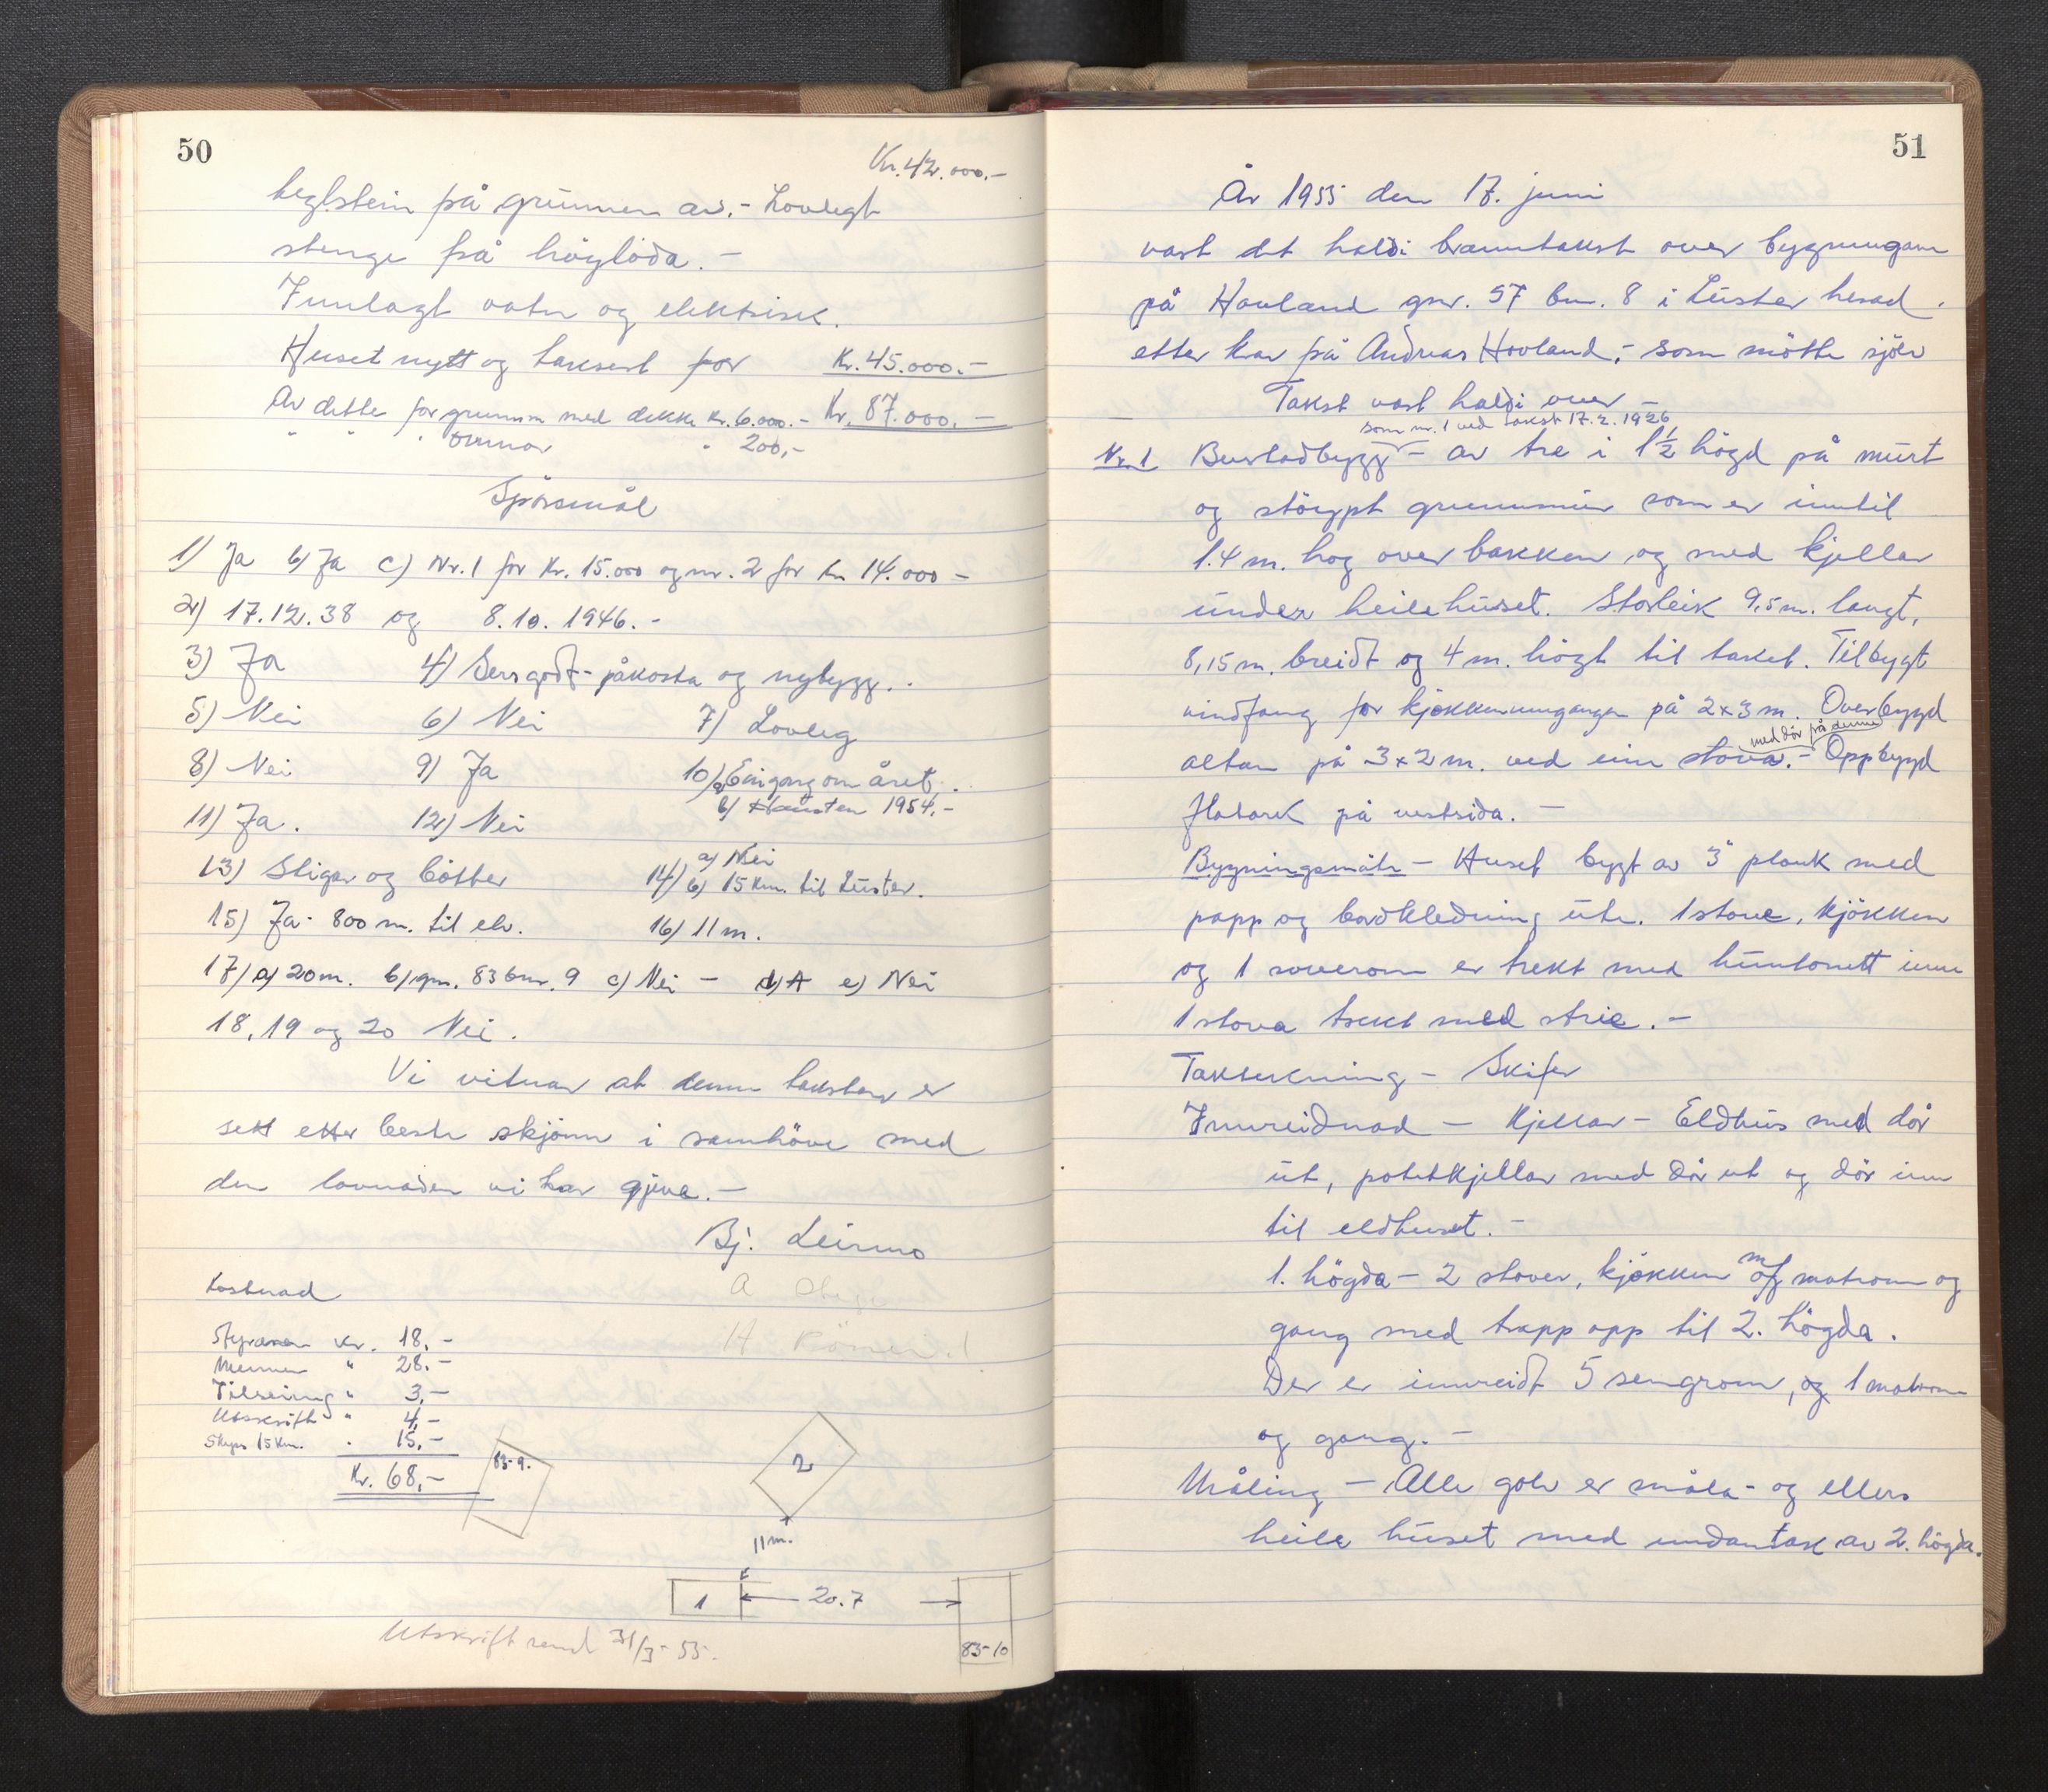 50
Kr. 42.000.-
teglstein på grunnen av. - Lovlegt
stenge frå höyloda. -
Innlagt vatn og elektrisk.
Huset nytt og taksert for Kr. 45.000.-
Av dette for grunnm med dekke Kr. 6.000.- Kr. 87.000.-
" " " omnar " 200,-
Spörsmål
1) Ja b) Ja c) Nr. 1 for Kr. 15.000 og nr. 2 for Kr 14.000 -
2) 17.12.38 og 8.10.1946. -
3) Ja 4) Sers godt - påkosta og nybygg. .
5) Nei 6) Nei 7) Lovleg
8) Nei 9) Ja 10) a) Ein gong om året. .
b) Hausten 1954. -
11) Ja. 12) Nei
13) Stigar og bötter 14) a) Nei
b) 15 km. til Luster.
15) Ja - 800 m. til elv. 16) 11 m.
17) a) 20 m. b) gnr. 83 bnr. 9 c) Nei - d) A e) Nei
18, 19 og 20 Nei.
Vi vitnar at denne taksten er
sett etter beste skjönn i samhöve med
den lovnaden vi har gjeve. -
Bj. Leirmo
A
H
Kostnad
Styraren kr. 18,-
Mennene " 28.-
Tilseing " 3,-
Utskrift " 4,-
Skyss 15 km. " 15,-
Kr. 68,-
83-9.
2
11 m.
1
20.7
83-10
Utskrift send 31/3-55.
51
År 1955 den 17. juni
vart det haldi branntakst over bygningane
på Hovland gnr. 57 bnr. 8 i Luster herad.
etter krav frå Andreas Hovland, - som mötte sjölv
Takst vart haldi over -
som nr. 1 ved takst 17.2.1926
Nr. 1 Bustadbygg - av tre i 1½ högd på murt
og stöypt grunnmur som er inntil
1.4 m. hog over bakken og med kjellar
under heile huset. Storleik 9,5 m. langt,
8,15 m. breidt og 4 m. högt til taket. Tilbygt
vindfang for kjökkeninngangen på 2x3 m. Overbygd
med dör på denne
altan på 3x2 m. ved ein stova. - Oppbygd
flatark på vestsida. -
Bygningsmåte - Huset bygt av 3" plank med
papp og bordkledning ute. 1 stove, kjökken
og 1 soverom er trekt med huntonitt inne
1 stova trekt med strie. -
Taktekning - Skifer
Innreidnad - Kjellar - Eldhus med dör
ut, potetkjellar med dör ut og dör inn
til eldhuset. -
1. högda - 2 stover, kjökken m/ matrom og
gang med trapp opp til 2. högda.
Der er innreidt 5 sengrom, og 1 matrom
og gang. -
Måling - Alle golv er måla - og ellers
heile huset med undantak av 2. högda.